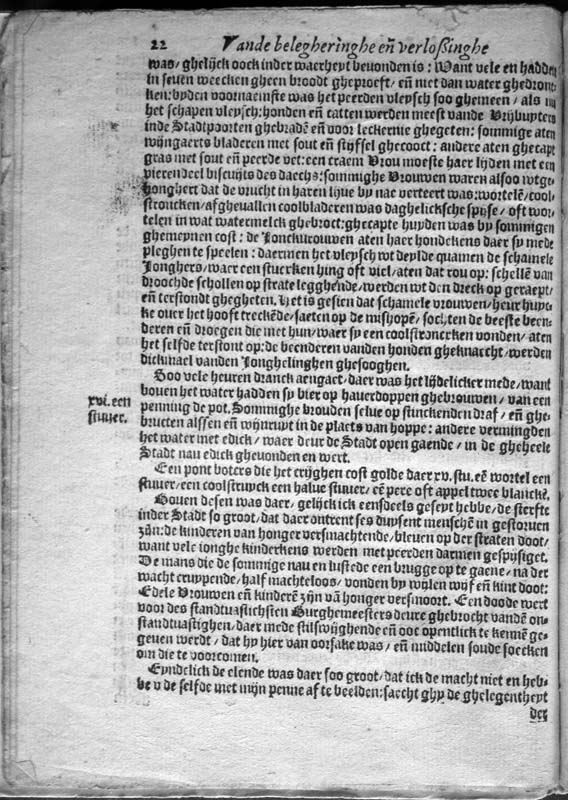 22 Vande belegheringhe eñ verloßinghe
was/ ghelijck oock inder waerheyt bevonden is: Want vele en hadden
in seven weecken gheen broodt gheproeft/ eñ niet dan water ghedronc-
ken: byden voornaemste was het peerden vleysch soo ghemeen/ als nu
het schapen vleysch: honden eñ catten werden meest vande Vrijbuyters
inde Stadtpoorten ghebradē eñ voor leckernie ghegeten: sommige aten
wijngaerts bladeren met sout eñ stijfsel ghecooct: andere aten ghecapt
gras met sout eñ peerde vet: een craem Vrou moeste haer lijden met een
vierendeel biscuijts des daechs: sommighe Vrouwen waren alsoo wtge-
honghert dat de vrucht in haren lijve by nae verteert was: wortelē/ cool-
stroncken/ afghevallen coolbladeren was daghelicksche spijse/ oft wor-
telen in wat watermelck ghebroct: ghecapte huyden was by sommigen
ghemeynen cost: de Jonckvrouwen aten haer hondekens daer sy mede
pleghen te speelen: daermen het vleysch wt deylde quamen de schamele
Jonghers/ waer een stucrken hing oft viel/ aten dat rou op: schellē van
droochde schollen op strate legghende/ werden wt den dreck op geraept/
eñ terstondt ghegheten. Het is gesien dat schamele vrouwen/ heur huyc-
ke over het hooft treckēde/ saeten op de mishopē/ sochten de beeste been-
deren eñ droegen die met hun/ waer sy een coolstroncrken vonden/ aten
het selfde terstont op: de beenderen vanden honden gheknaecht/ werden
dickmael vanden Jonghelinghen ghesooghen.
Soo vele heuren dranck aengaet/ daer was het lijdelicker mede/ want
boven het water hadden sy bier op haverdoppen ghebrouwen/ van een
xvi. een
stuver.
penning de pot. Sommighe brouden selve op stinckenden draf/ eñ ghe-
bructen alssen eñ wijnruyt in de plaets van hoppe: andere vermingden
het water met edick/ waer deur de Stadt open gaende/ in de gheheele
Stadt nau edick ghevonden en wert.
Een pont boters die het crijghen cost golde daer xv. stu. eē wortel een
stuver/ een coolstruyck een halve stuver/ eē pere oft appel twee blanckē.
Boven desen was daer/ gelijck ick eensdeels geseyt hebbe/ de sterfte
inder Stadt so groot/ dat daer ontrent ses duysent menschē in gestorven
zijn: de kinderen van honger versmachtende/ bleven op der straten doot/
want vele ionghe kinderkens werden met peerden darmen gespijsiget.
De mans die de sommige nau en lustede een brugge op te gaene/ na der
wacht cruypende/ half machteloos/ vonden by wijlen wijf eñ kint doot:
Edele Vrouwen eñ kinderē zijn vā honger versmoort. Een doode wert
voor des standtvastichsten Burghemeesters deure ghebrocht vandē on-
standtvastighen/ daer mede stilswijghende eñ ooc opentlick te kennē ge-
geven werdt/ dat hy hier van oorsake was/ eñ middelen soude soecken
om die te voorcomen.
Eyndelick de elende was daer soo groot/ dat ick de macht niet en heb-
be v de selfde met mijn penne af te beelden: saecht ghy de ghelegentheyt
der